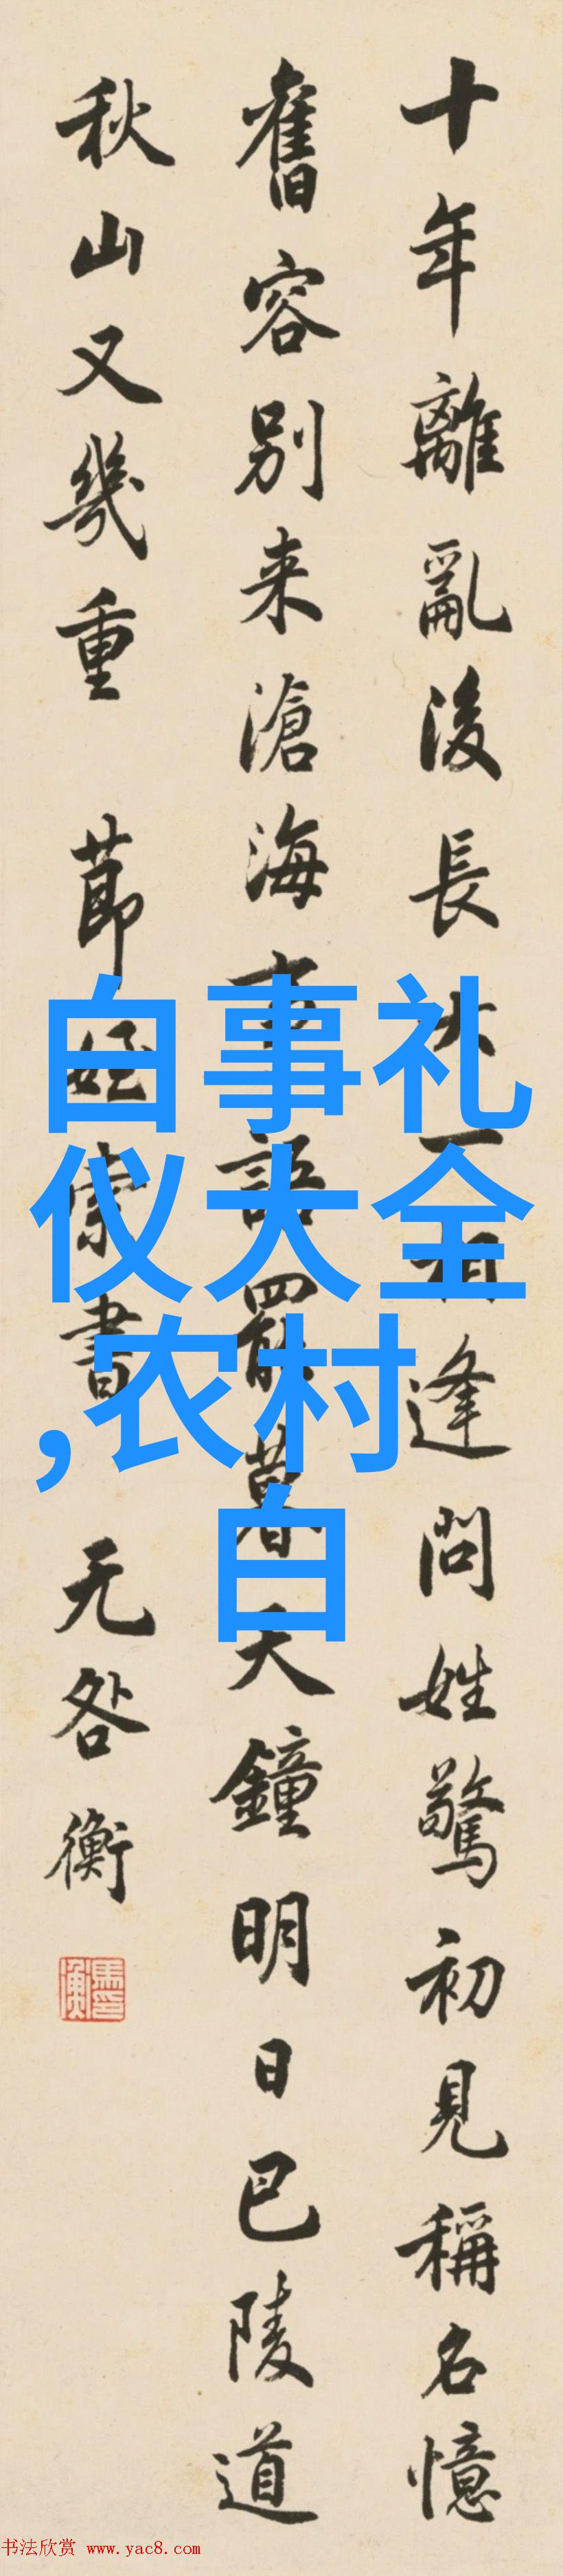 十年離亂後長大一相逢問姓驚初見稱名憶
舊容別来滄海事語罷暮天鐘明日巴陵道
秋山又幾重 莭姪索書 无咎衡
白事礼
仪大全
,农村
白
书法欣赏 www.yac8.com